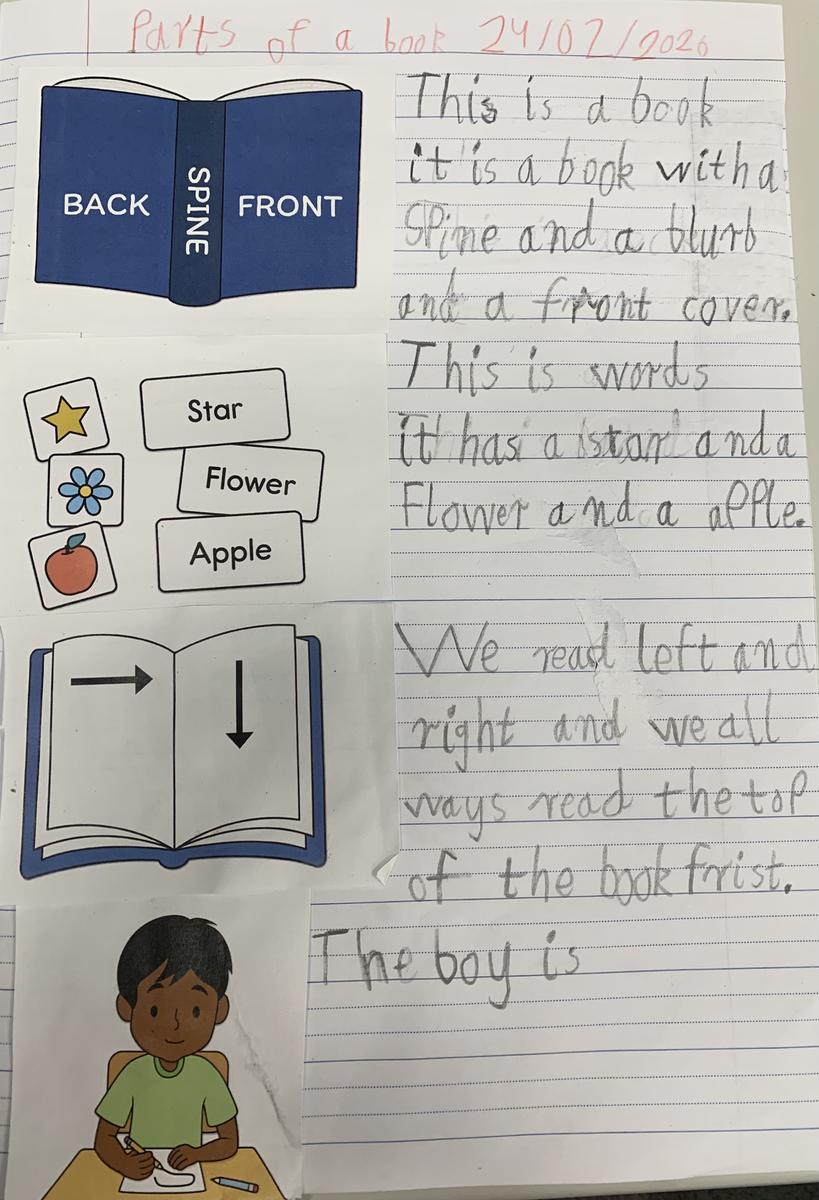 Parts of a book 24/02/2026
BACK
SPINE
FRONT
This is a book
it is a book with a
Spine and a blurb
and a front cover.
Star
Flower
Apple
This is words
it has a star and a
Flower and a apple.
We read left and
right and we all
ways read the top
of the book frist.
The boy is